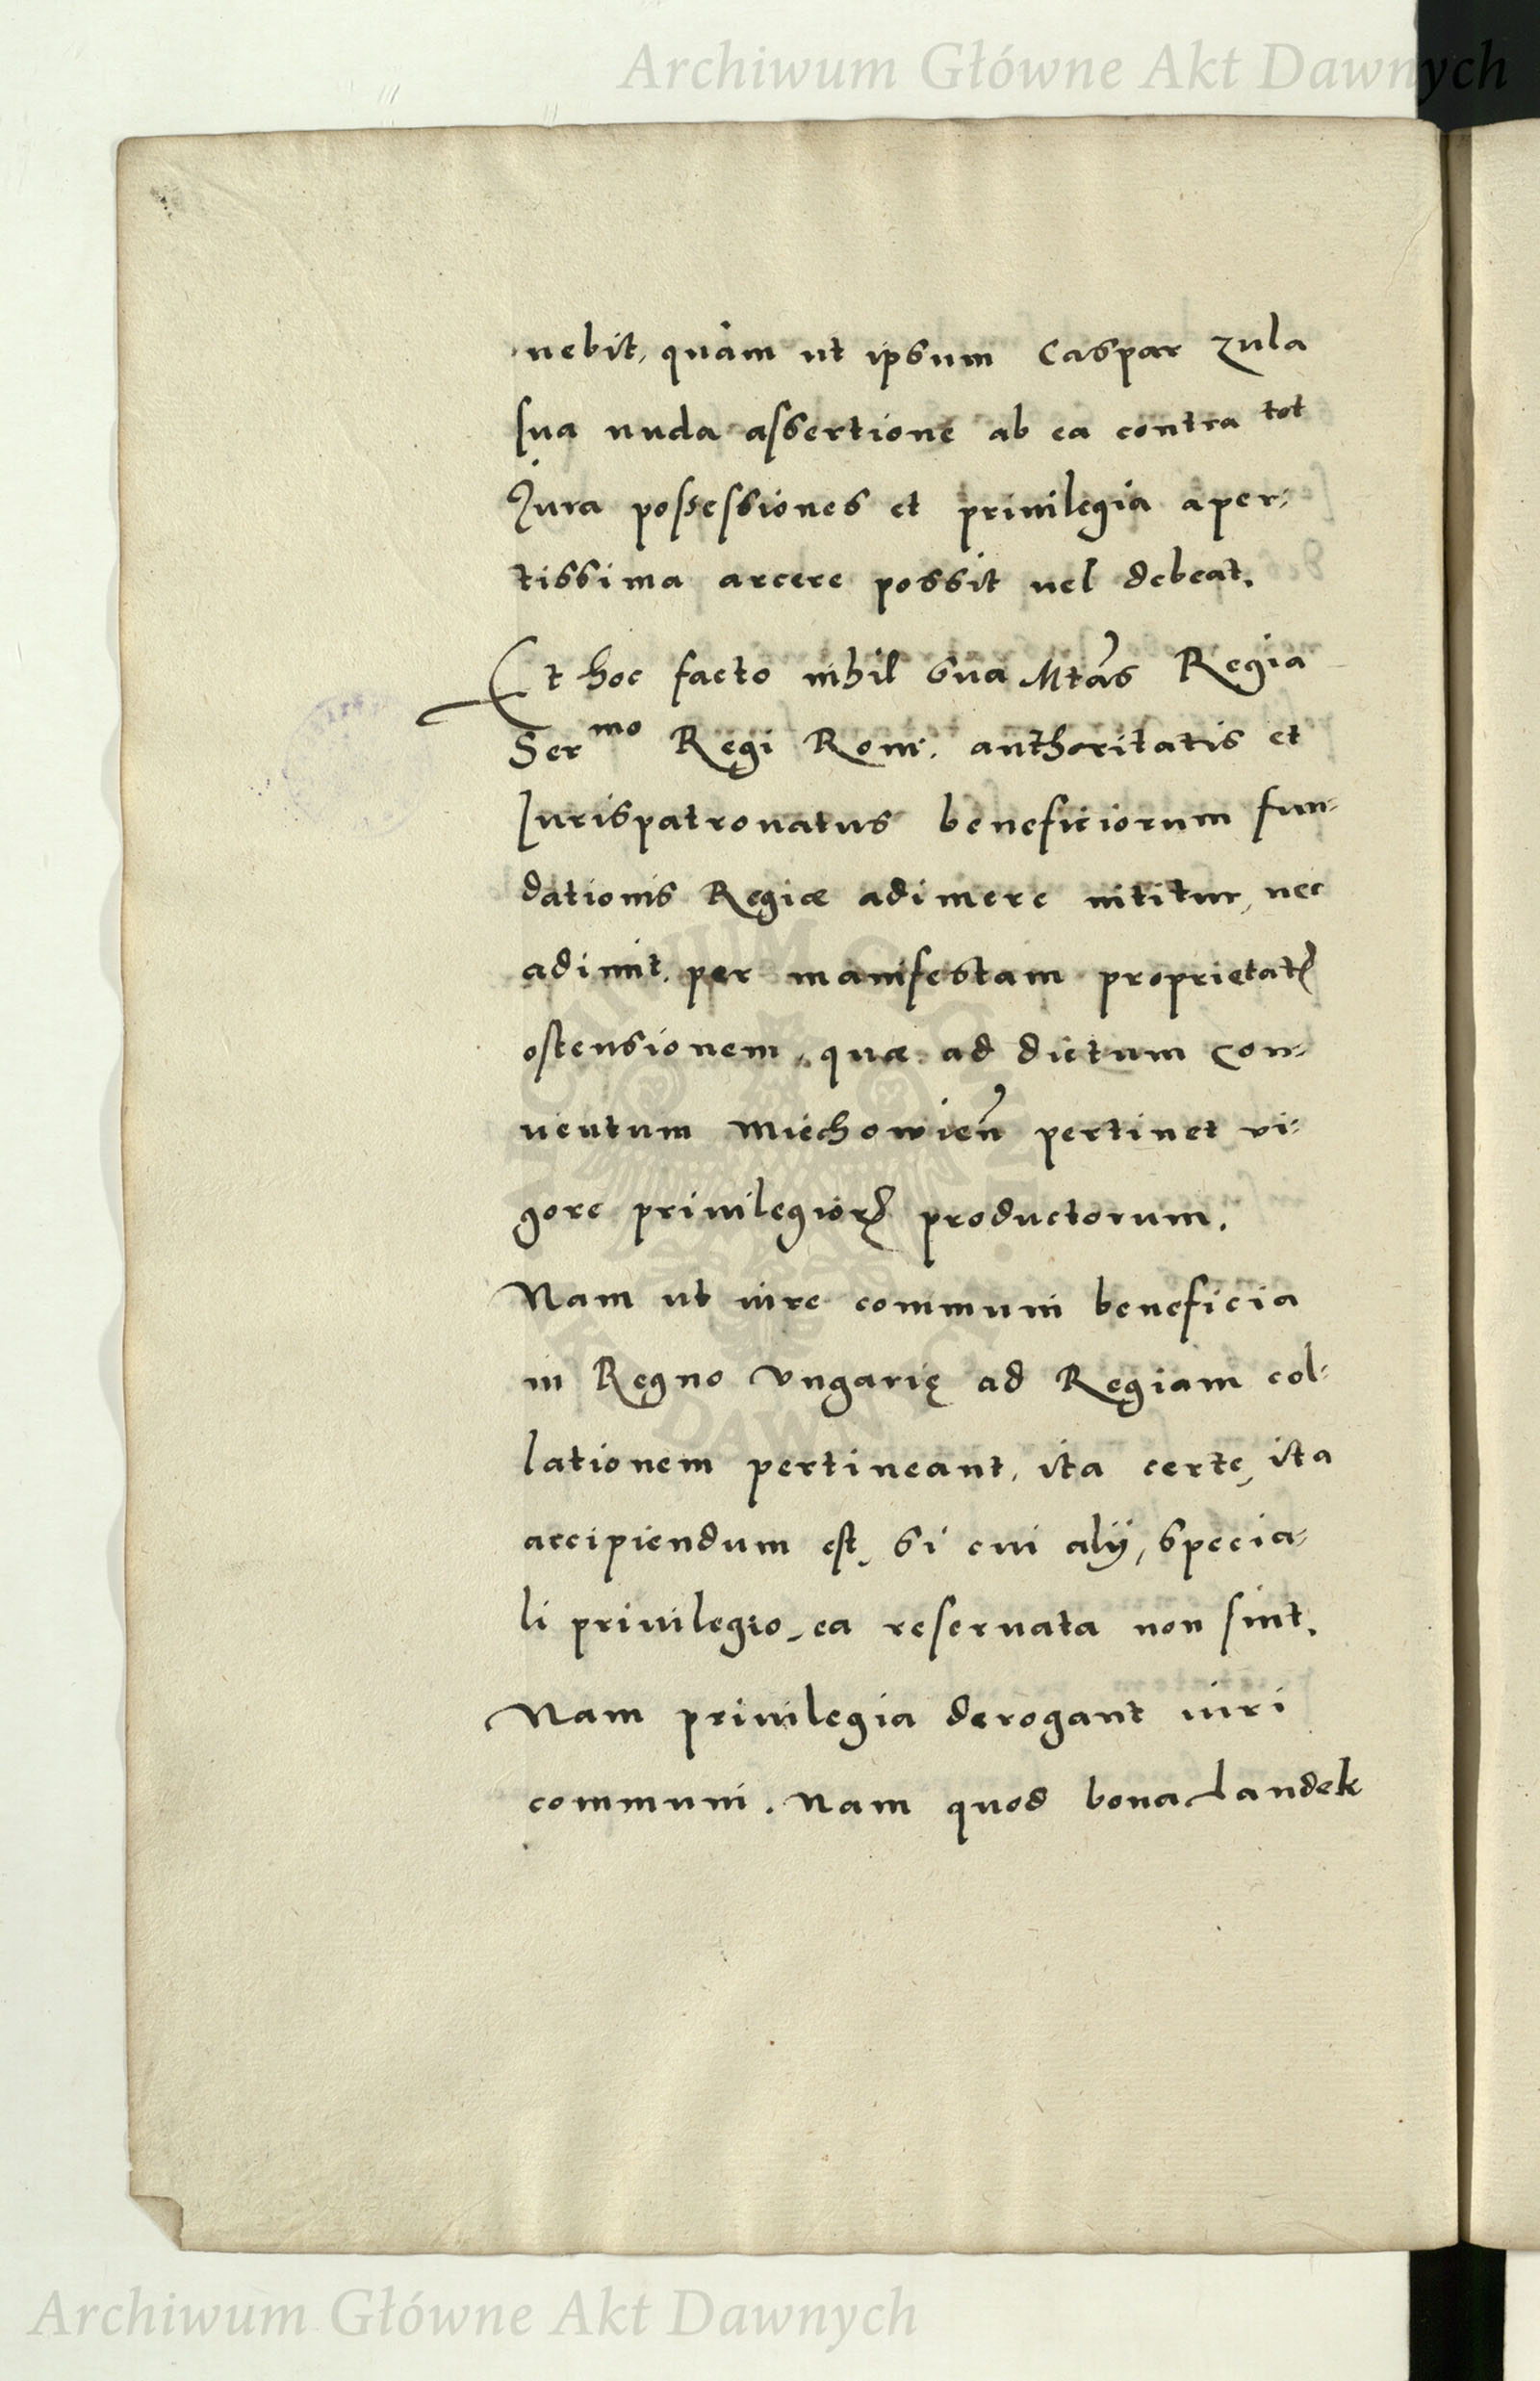 Archiwum Główne Akt Dawnych
nebit, quàm ut ipsum Caspar Zula
sua nuda assertione ab ea contra tot
Jura possessiones et priuilegia aper-
tissima arcere possit uel debeat.
Et hoc facto nihil sua Mtas Regia
Sermo Regi Rom. authoritatis et
Jurispatronatus beneficiorum fun-
dationis Regiæ adimere nititur, nec
adimit, per manifestam proprietat
ostensionem, quæ ad dictum con-
uentum Miechowien pertinet vi-
gore priuilegior productorum.
Nam ut iure communi beneficia
in Regno Vngarię ad Regiam col-
lationem pertineant, ita certe, ita
accipiendum est, si cui alij, specia-
li priuilegio, ea reseruata non sint.
Nam priuilegia derogant iuri
communi. Nam quod bona Landek
Archiwum Główne Akt Dawnych